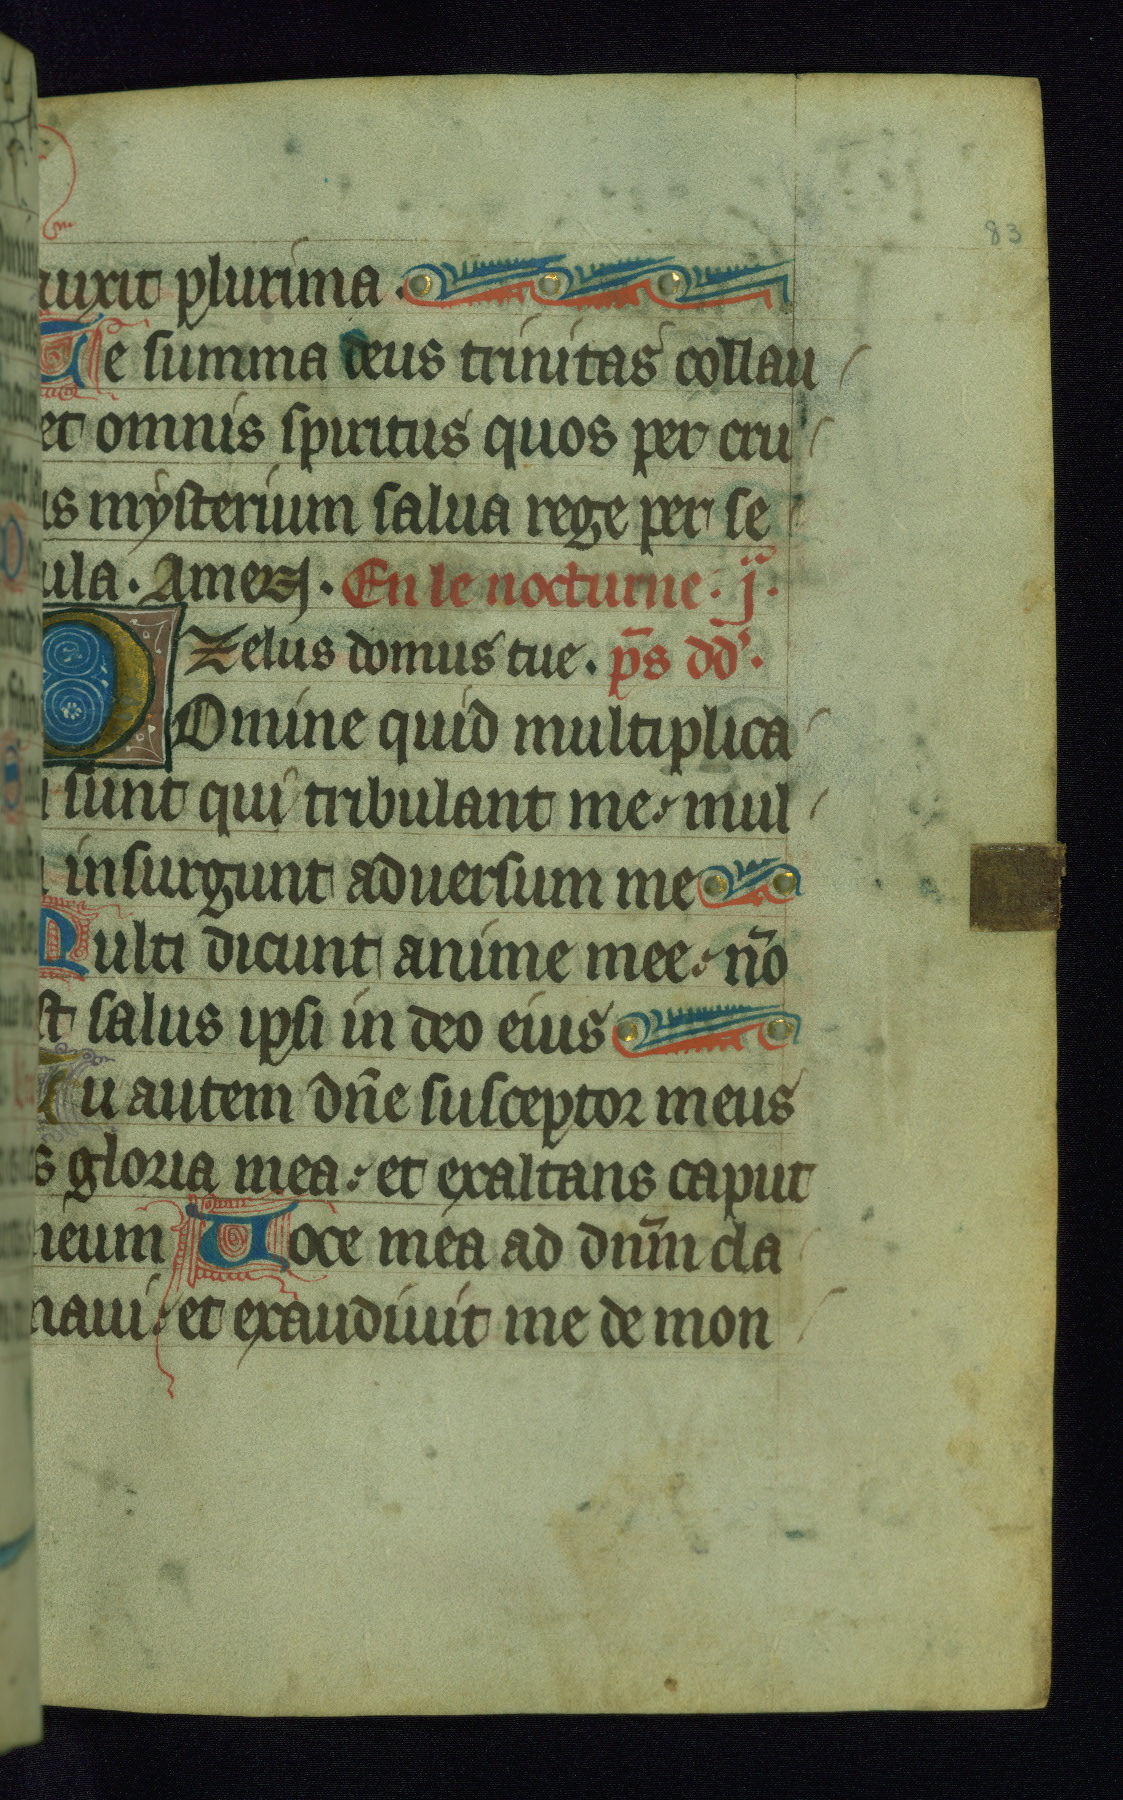 83
uxit plurima .
Te summa deus trinitas collau
et omnis spiritus quos per cru
is mysterium salua rege per se
ula . Amen . En le nocturne . j .
zelus domus tue . p̄s dd' .
Domine quid multiplica
i sunt qui tribulant me : mul
i insurgunt aduersum me
Multi dicunt anime mee : nō
st salus ipsi in deo eius
Tu autem dn̄e susceptor meus
s gloria mea : et exaltans caput
meum Uoce mea ad dnm̄ cla
maui : et exaudiuit me de mon